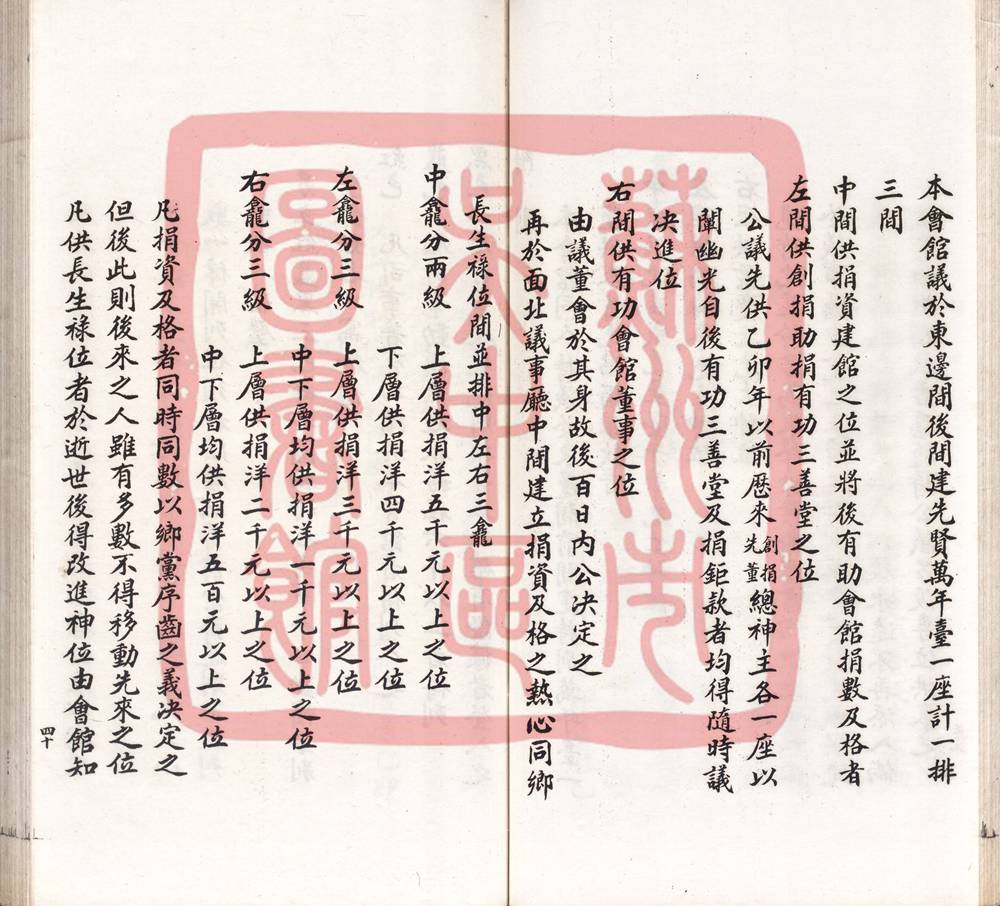 本會館議於東邊間後間建先賢萬年臺一座計一排
三間
中間供捐資建館之位並將後有助會館捐數及格者
左間供創捐助捐有功三善堂之位
公議先供乙卯年以前歷來創捐先董總神主各一座以
闡幽光自後有功三善堂及捐鉅款者均得隨時議
決進位
右間供有功會館董事之位
由議董會於其身故後百日內公決定之
再於面北議事廳中間建立捐資及格之熱心同鄉
長生祿位間並排中左右三龕
中龕分兩級 上層供捐洋五千元以上之位
下層供捐洋四千元以上之位
左龕分三級 上層供捐洋三千元以上之位
中下層均供捐洋一千元以上之位
右龕分三級 上層供捐洋二千元以上之位
中下層均供捐洋五百元以上之位
凡捐資及格者同時同數以鄉黨序齒之義決定之
但後此則後來之人雖有多數不得移動先來之位
凡供長生祿位者於逝世後得改進神位由會館知
四十
蘇州市
吳中區
圖書館